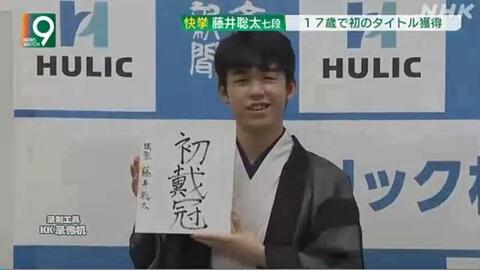 NEWS WATCH 9
快挙 藤井聡太七段 17歳で初のタイトル獲得
NHK
HULIC
新聞
HULIC
初戴冠
棋聖 藤井聡太
リック株
录制工具
KK录像机